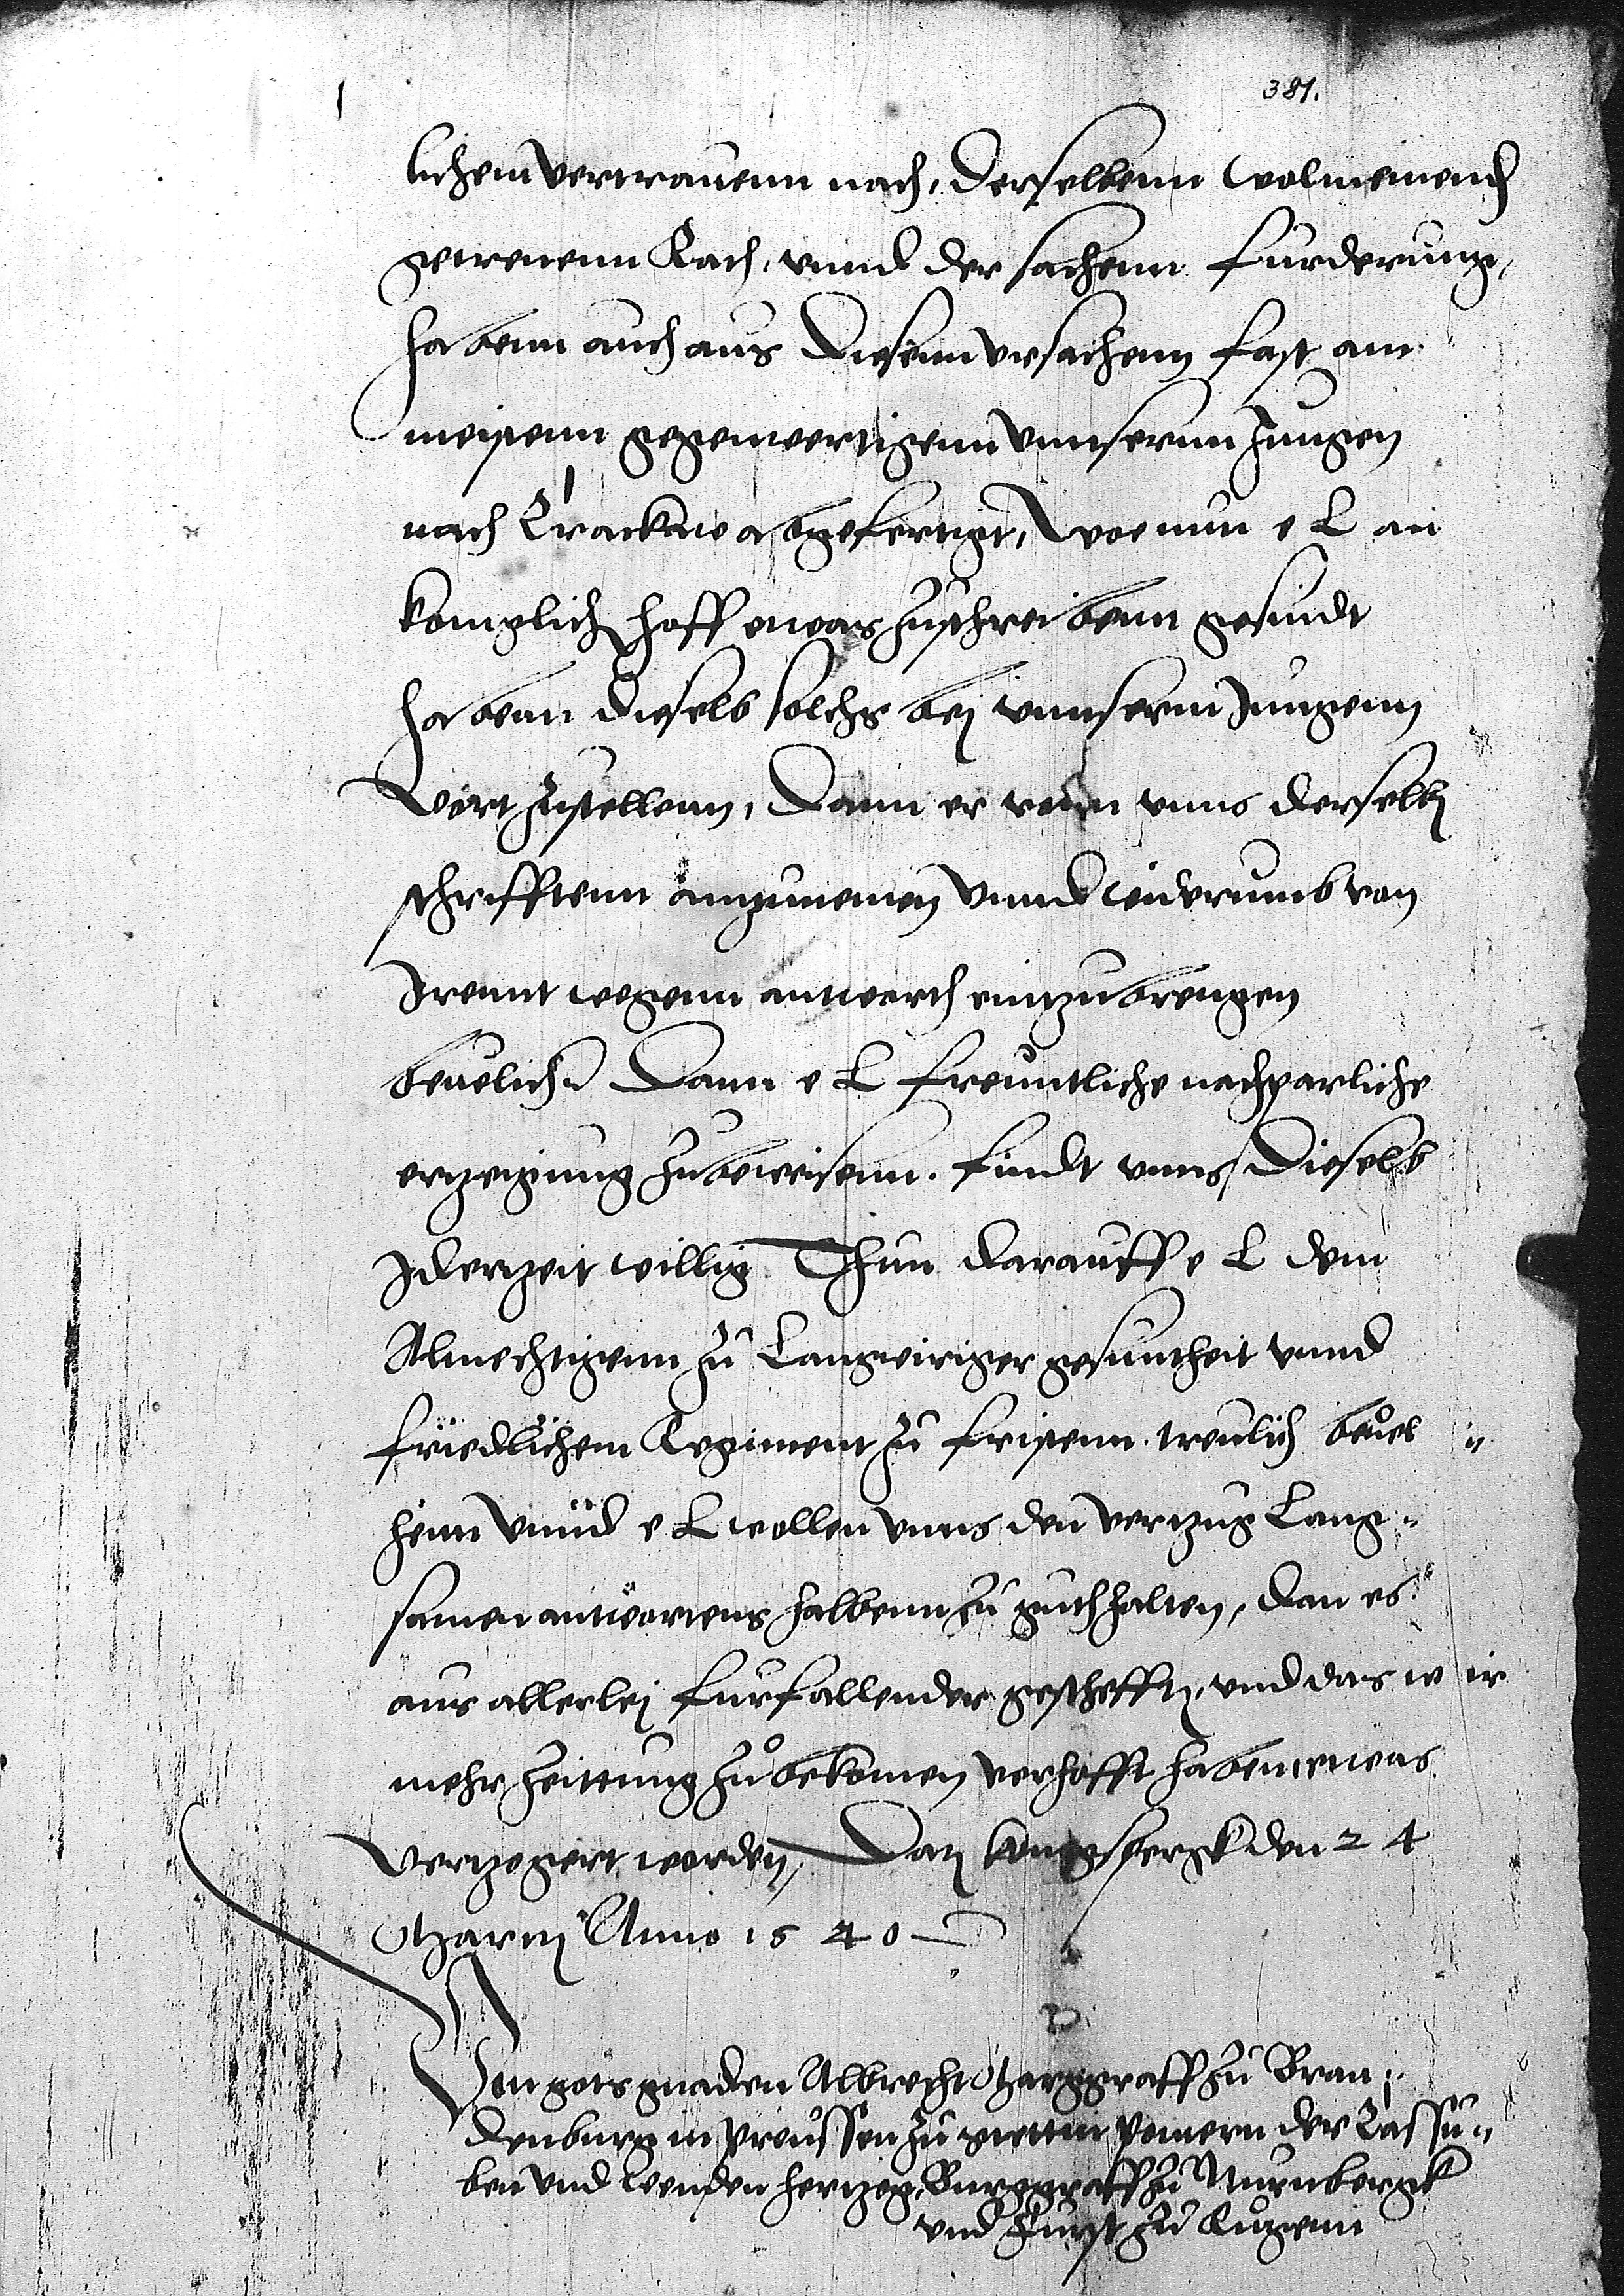 381.
lichem vertrauenn nach, derselbenn wolmeinend
getreuenn Rath, vnnd der sachenn furderung,
habenn auch aus diesenn vrsachenn fast am
meistenn gegenwertigenn vnnsernn Jungen
nach Crackaw abgefertigt, Woe nun e L an
koniglich hoff etwas zuschreibenn gesindt
habenn dieselb solchs bej vnnserm Jungenn
vort zustellenn, Dann er vonn vnns derselbn
schrifftenn anzunemen vnnd widerumb von
Irennt wegenn antworth eintzubrengen
beuelich Dann e L freuntliche nachparliche
ertzeigung zubeweisenn. findt vnns dieselb
Iderzeit willig Thun darauff e L dem
Almechtigenn zu Langwiriger gesuntheit vnnd
friedlichem Regiment zu fristenn. treulich beuel
henn Vnnd e L wollen vnns den vertzug Lang
samen antwortens halbenn zu guth halten, dan es
aus allerlej furfallender gescheffte, vnd das wir
mehr Zeittung zu bekomen verhofft haben etwas
vertzogert worden, Datj konigspergk den 24
Martij Anno 1540
Von gots gnaden Albrecht Marggraff zu Bran
denburg in Preussen zu Stettin Pomern der Cassu
ben vnd Wenden hertzog, Burggraff zu Nurnbergk
vnd Furst zu Rugenn